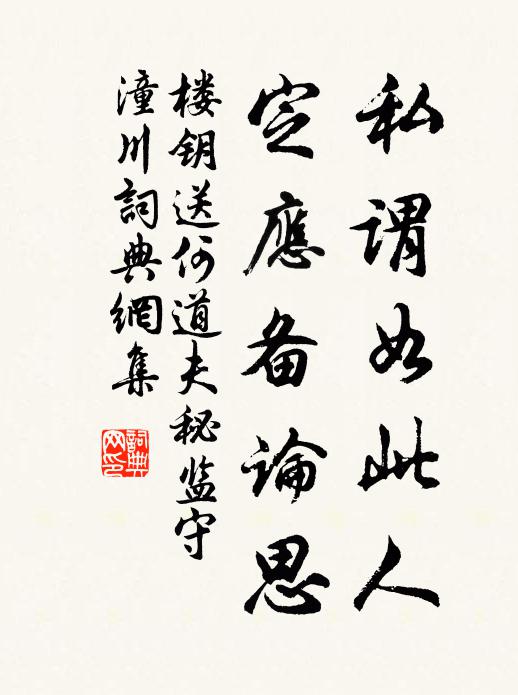 私谓如此人
定應备論思
楼钥送何道夫秘监守
潼川詞典網集
詞典
网印